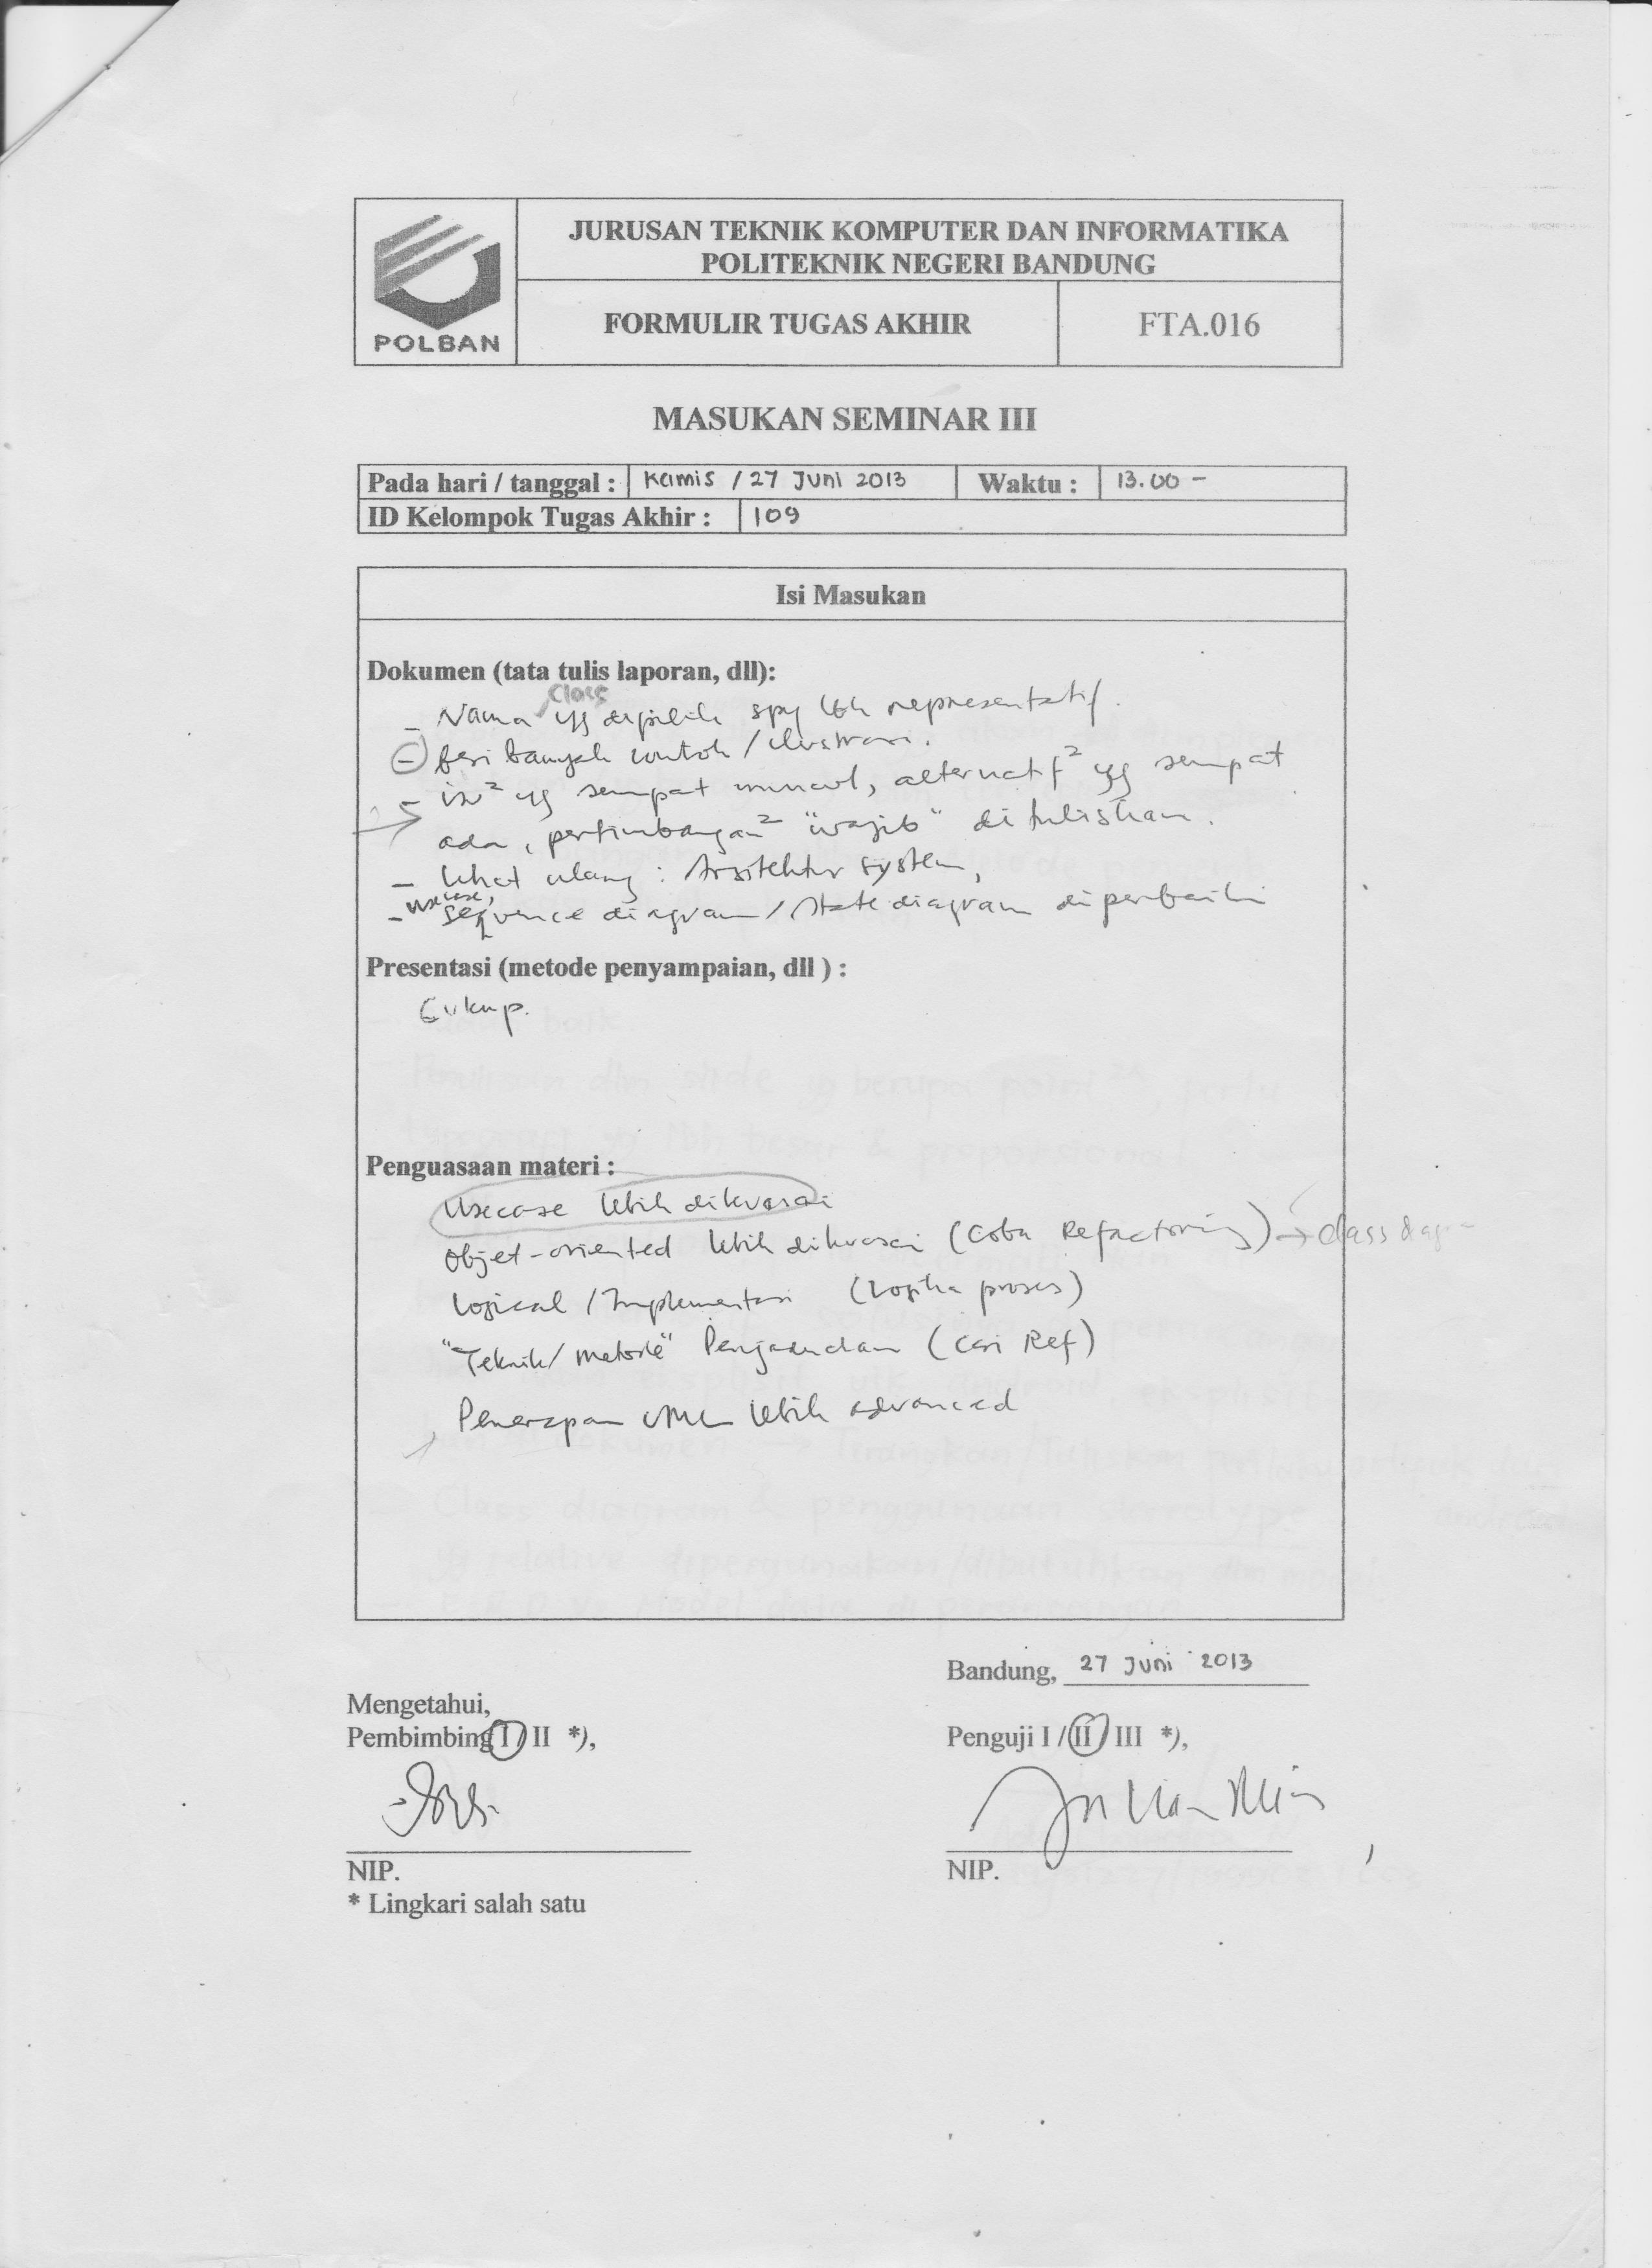 POLBAN
JURUSAN TEKNIK KOMPUTER DAN INFORMATIKA
POLITEKNIK NEGERI BANDUNG
FORMULIR TUGAS AKHIR
FTA.016
MASUKAN SEMINAR III
Pada hari / tanggal : Kamis / 27 Juni 2013 Waktu : 13.00 -
ID Kelompok Tugas Akhir : 109
Isi Masukan
Dokumen (tata tulis laporan, dll):
Class
- Nama yg dipilih spy lbh representatif.
- Beri banyak contoh / ilustrasi.
- isu² yg sempat muncul, alternatif² yg sempat
ada, pertimbangan² "wajib" dituliskan.
- Lihat ulang : Arsitektur system,
usecase,
- sequence diagram / state diagram diperbaiki
Presentasi (metode penyampaian, dll ) :
Cukup.
Penguasaan materi :
Usecase lebih dikuasai
Objet-oriented lebih dikuasai (Coba Refactoring) → class
Logical / Implementasi (Logika proses)
"Teknik/ metode" Penjadualan (Cari Ref)
Penerapan UML lebih advanced
Bandung, 27 Juni 2013
Mengetahui,
Pembimbing I / II *),
Penguji I / II / III *),
NIP.
NIP.
* Lingkari salah satu